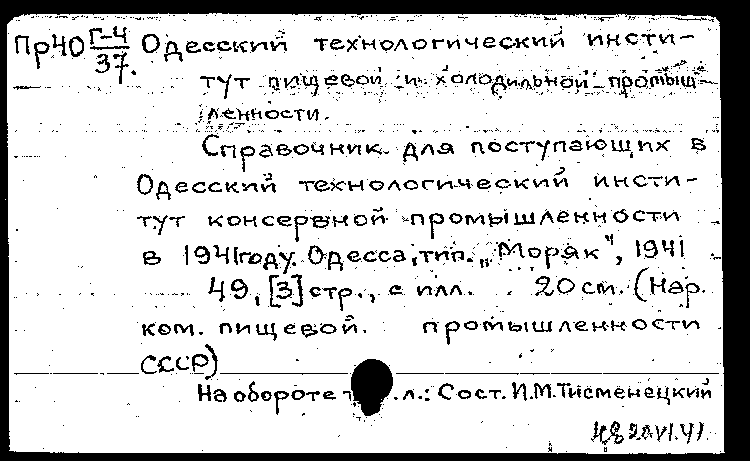 Пр40 Г-4 Одесский технологический инсти-
37.
тут пищевой и холодильной промыш-
ленности.
Справочник для поступающих в
Одесский технологический инсти-
тут консервной промышленности
в 1941 году. Одесса, тип. „Моряк", 1941
49, [3] стр., с илл. 20 см. (Нар.
ком. пищевой. промышленности
СССР)
На обороте т .л.: Сост. И.М. Тисменецкий